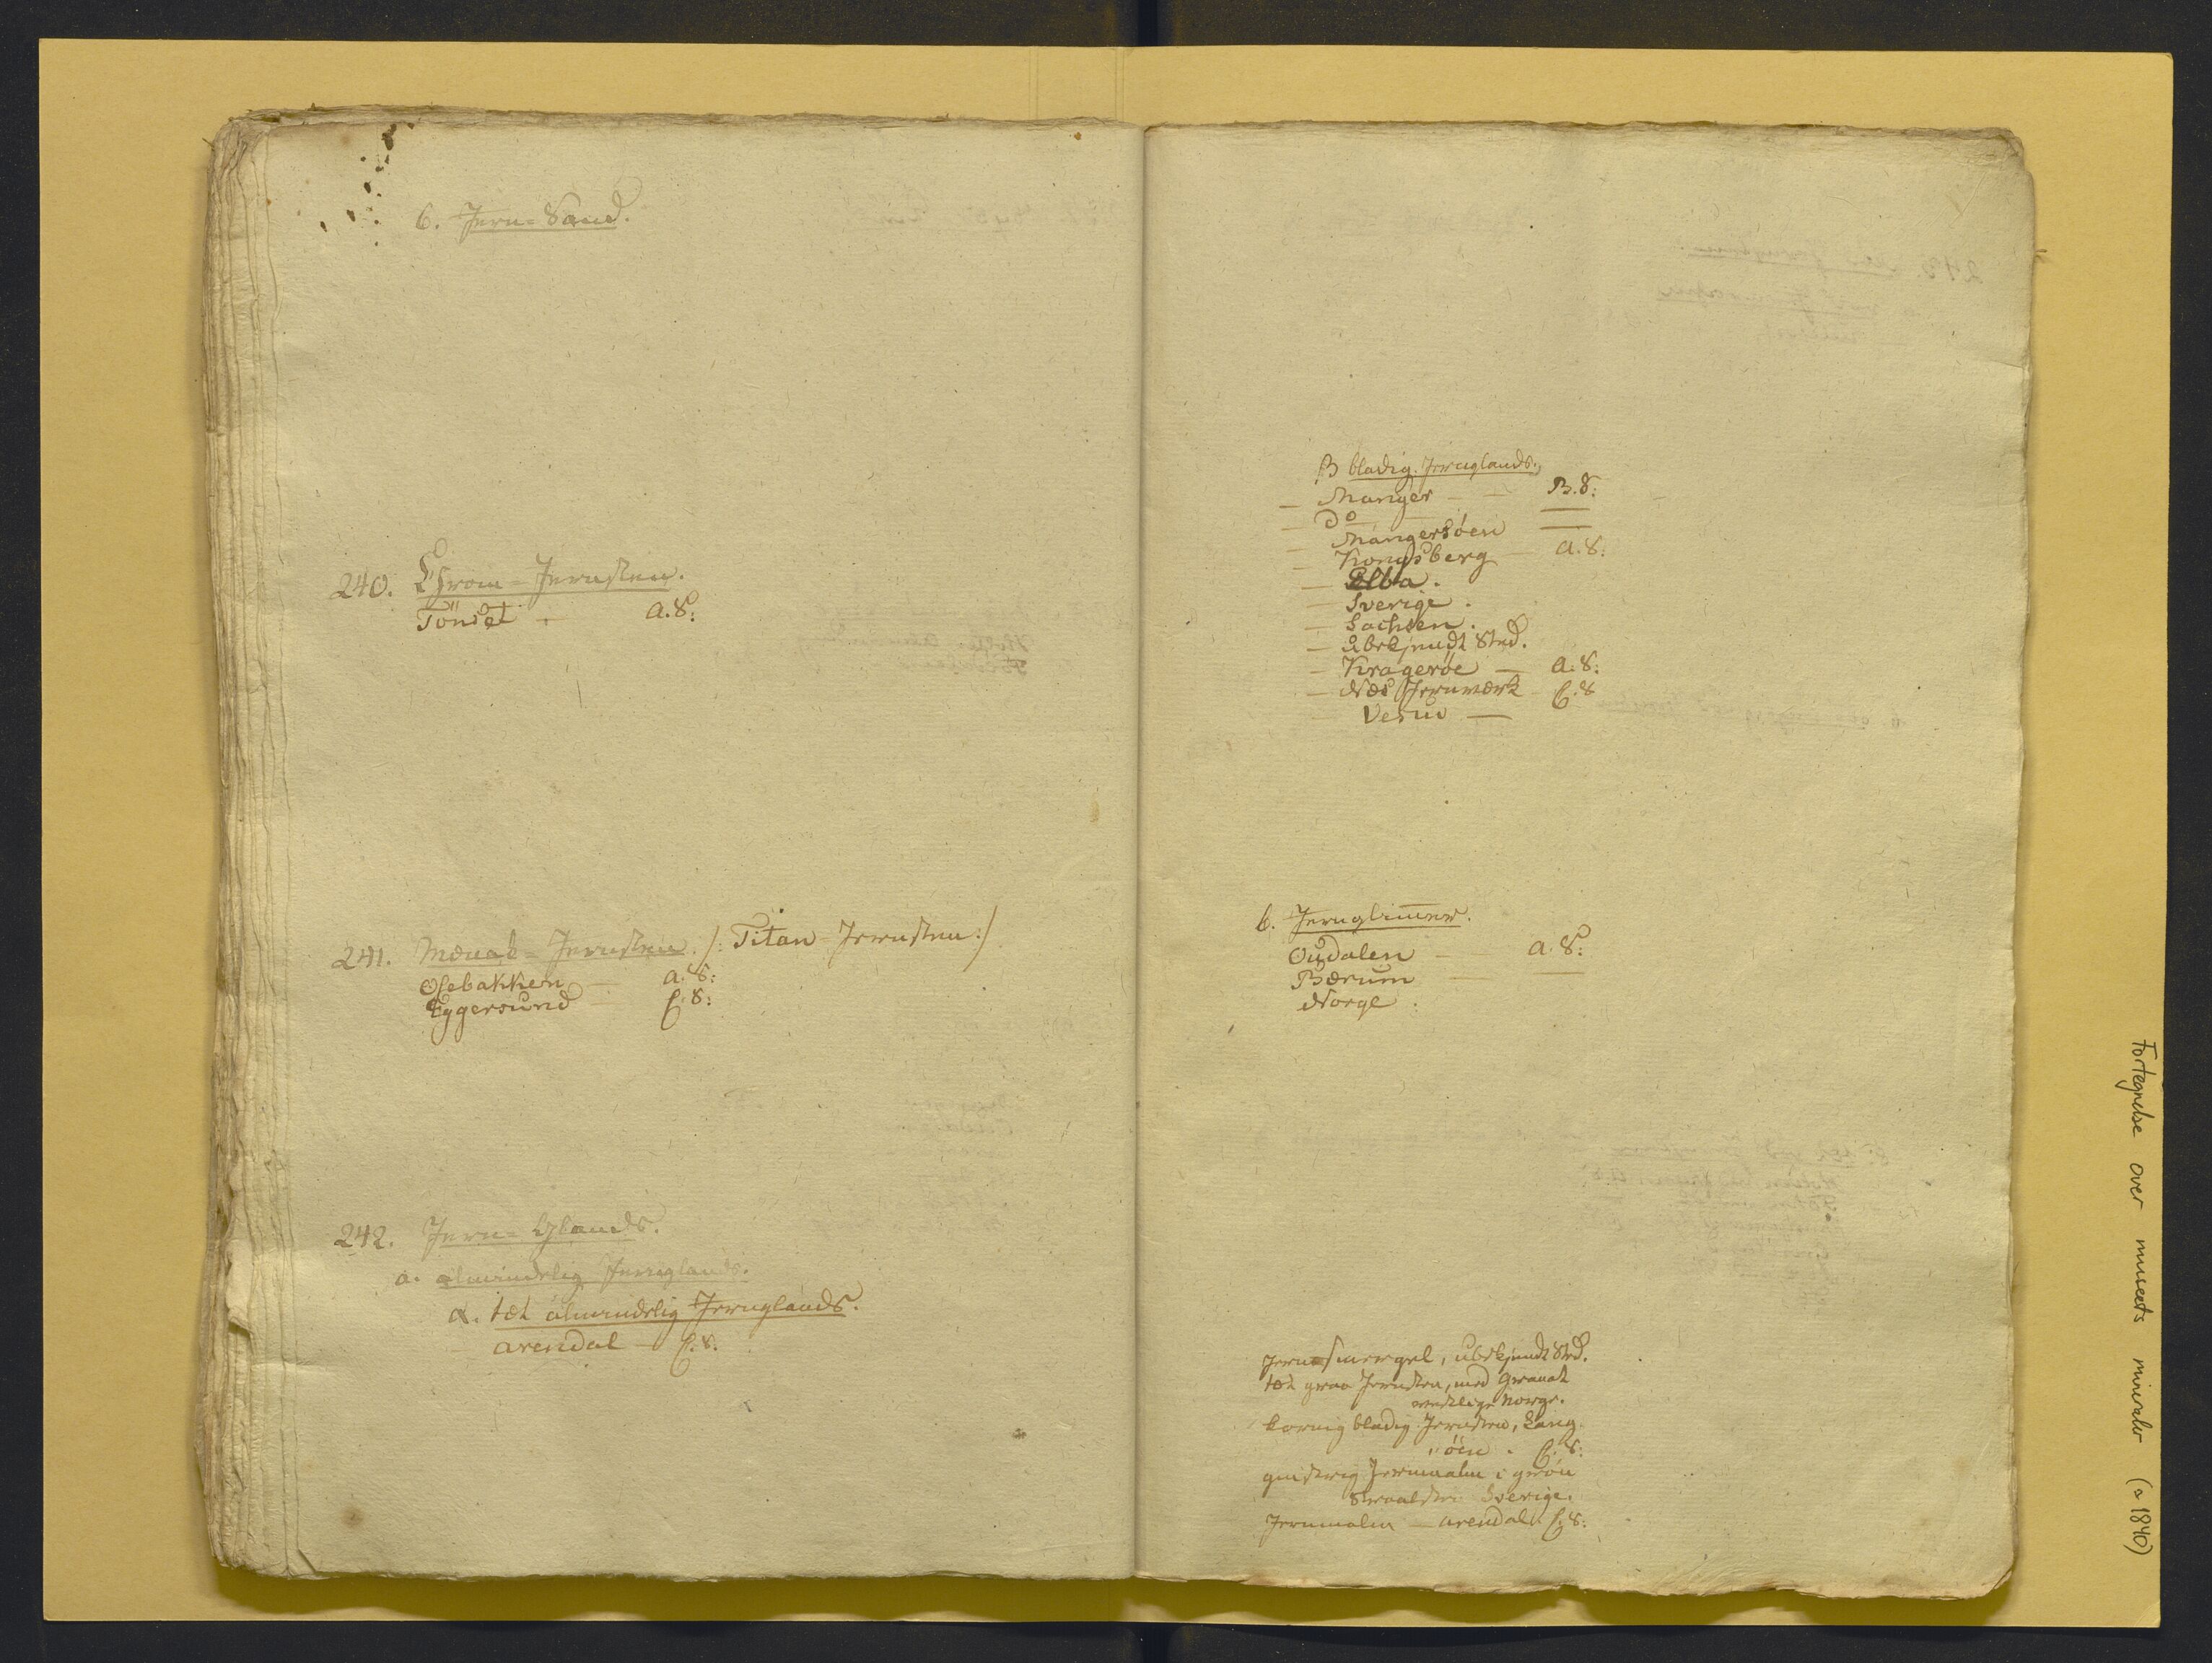 6. Jern=Sand.
240. Chrom=Jernsten.
Tönset - A.S:
241. Mænak=Jernsten. /: Titan-Jernsten :/
Osebakken - A.S:
Eggersund C.S:
242. Jern=Glands.
a. almindelig Jernglands.
α. tæt almindelig Jernglands.
- Arendal - C.S.
β bladig Jernglands.
- Manger - - B.S:
- Do —
- Mangersöen —
- Kongsberg - A.S:
- Elba.
- Sverige.
- Sachsen.
- Ubekjendt Sted.
- Kragerøe - A.S:
- Næs Jernværk C.S
Vesuv —
b. Jernglim̅er.
Oudalen - - A.S:
Bærum —
Norge.
Jern=Smergel, ubekjendt Sted.
tæt graa Jernsten, med Granat
vestlige Norge.
kornig bladig Jernsten, Lang
"öen. C.S:
Jernmalm i grön
Straalsten Sverige.
Jernmalm — Arendal. C.S:
Fortegnelse over museets mineraler (ca 1840)